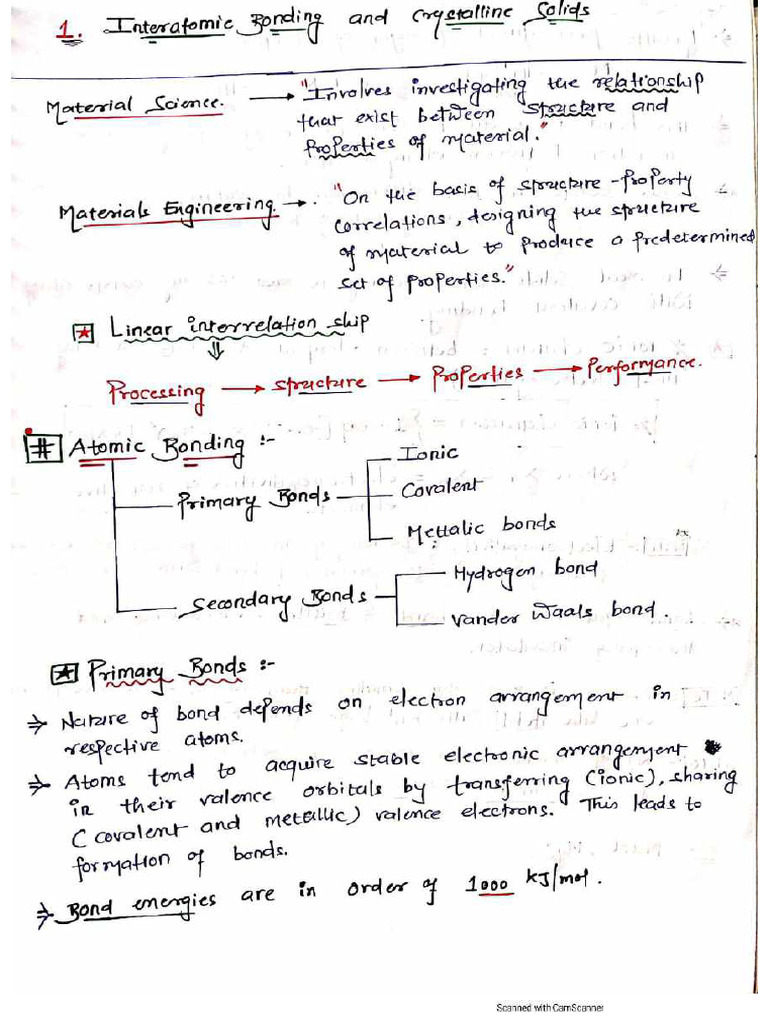 1. Interatomic Bonding and Crystalline Solids
Material Science. → "Involves investigating the relationship
that exist between structure and
properties of material."
Materials Engineering → . "On the basis of structure-property
correlations, designing the structure
of material to produce a predetermined
set of properties."
★ Linear interrelation ship
⇓
Processing → structure → Properties → Performance.
# Atomic Bonding :-
Ionic
Primary Bonds
Covalent
Mettalic bonds
Hydrogen bond
Secondary Bonds
Vander Waals bond.
★ Primary Bonds :-
⇒ Nature of bond depends on electron arrangement in
respective atoms.
⇒ Atoms tend to acquire stable electronic arrangement
in their valence orbitals by transferring (ionic), sharing
( covalent and metallic) valence electrons. This leads to
formation of bonds.
⇒ Bond energies are in order of 1000 kJ/mol.
Scanned with CamScanner